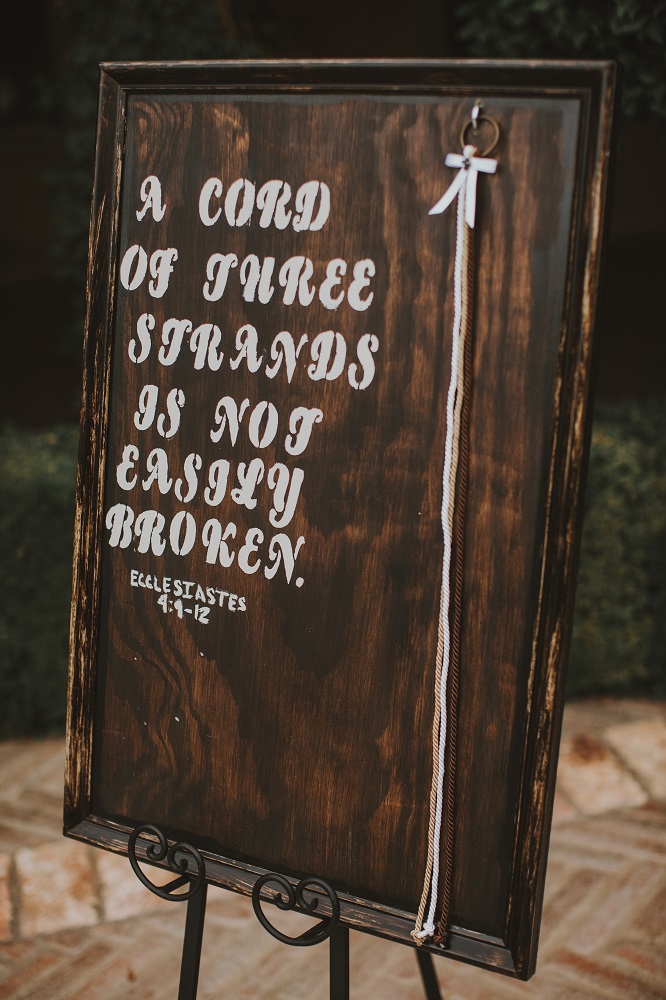 A CORD
OF THREE
STRANDS
IS NOT
EASILY
BROKEN.
ECCLESIASTES
4:9-12